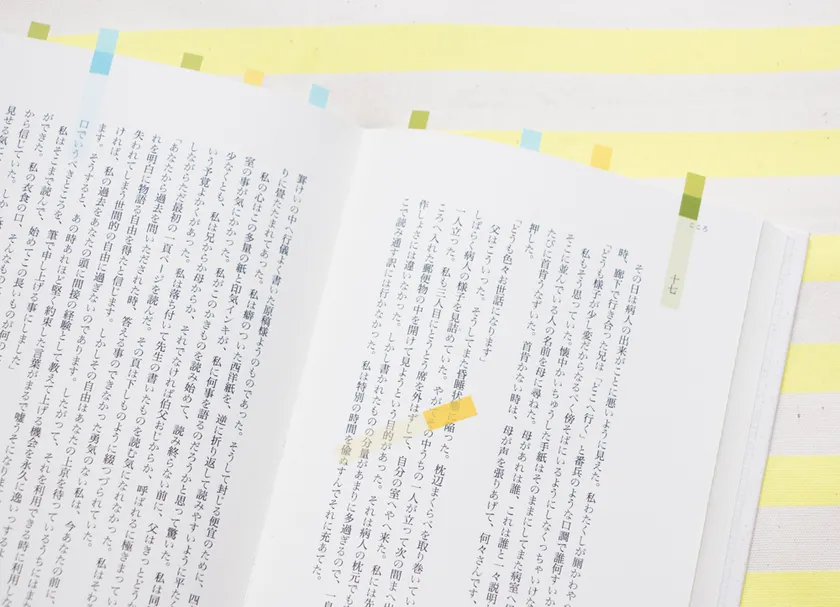 こころ
十七
その日は病人の出来がことに悪いように見えた。私わたくしが厠かわや
時、廊下で行き合った兄は「どこへ行く」と番兵のような口調で誰何すいか
「どうも様子が少し変だからなるべく傍そばにいるようにしなくっちゃいけな
私もそう思っていた。懐中かいちゅうした手紙はそのままにしてまた病室へ
そこに並んでいる人の名前を母に尋ねた。母があれは誰、これは誰と一々説明
たびに首肯うなずいた。首肯かない時は、母が声を張りあげて、何々さんです、
押した。
「どうも色々お世話になります」
父はこういった。そうしてまた昏睡状態に陥った。枕辺まくらべを取り巻いてい
しばらく病人の様子を見詰めていた。やがてその中うちの一人が立って次の間へ出
一人立った。私も三人目にとうとう席を外はずして、自分の室へやへ来た。私には先
ころへ入れた郵便物の中を開けて見ようという目的があった。それは病人の枕元でも
作しょさには違いなかった。しかし書かれたものの分量があまりに多過ぎるので、一息
こで読み通す訳には行かなかった。私は特別の時間を偸ぬすんでそれに充あてた。
嚢けいの中へ行儀よく書いた原稿様ようのものであった。そうして封じる便宜のために、四
りに畳たたまれてあった。私は癖のついた西洋紙を、逆に折り返して読みやすいように平たく
私の心はこの多量の紙と印気インキが、私に何事を語るのだろうかと思って驚いた。
室の事が気にかかった。私がこのかきものを読み始めて、読み終らない前に、父はきっとどうか
少なくとも、私は兄からか母からか、それでなければ伯父おじからか、呼ばれるに極きまってい
いう予覚よかくがあった。私は落ち付いて先生の書いたものを読む気になれなかった。私はそわ
しながらただ最初の一頁ページを読んだ。その頁は下しものように綴つづられていた。
「あなたから過去を問いただされた時、答える事のできなかった勇気のない私は、今あなたの前に、
れを明白に物語る自由を得たと信じます。しかしその自由はあなたの上京を待っているうちにはまた
失われてしまう世間的の自由に過ぎないのであります。したがって、それを利用できる時に利用し
ければ、私の過去をあなたの頭に間接の経験として教えて上げる機会を永久に逸いっするよ
ます。そうすると、あの時あれほど堅く約束した言葉がまるで嘘うそになります
口でいうべきところを、筆で申し上げる事にしました」
私はそこまで読んで、始めてこの長いものが何の
ができた。私の衣食の口、そんなもの
から信じていた。しか
見せる気に